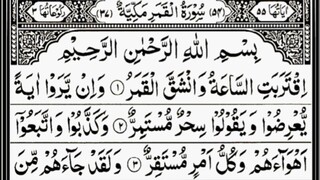 اٰيَاتُهَا ٥٥ (٥٤) سُوْرَةُ الْقَمَرِ مَكِّيَّةٌ (٣٧) رُكُوْعَاتُهَا ٣
بِسْمِ اللّٰهِ الرَّحْمٰنِ الرَّحِيْمِ
اِقْتَرَبَتِ السَّاعَةُ وَانْشَقَّ الْقَمَرُ ۝١ وَاِنْ يَّرَوْا اٰيَةً
يُّعْرِضُوْا وَيَقُوْلُوْا سِحْرٌ مُّسْتَمِرٌّ ۝٢ وَكَذَّبُوْا وَاتَّبَعُوْٓا
اَهْوَآءَهُمْ وَكُلُّ اَمْرٍ مُّسْتَقِرٌّ ۝٣ وَلَقَدْ جَآءَهُمْ مِّنَ